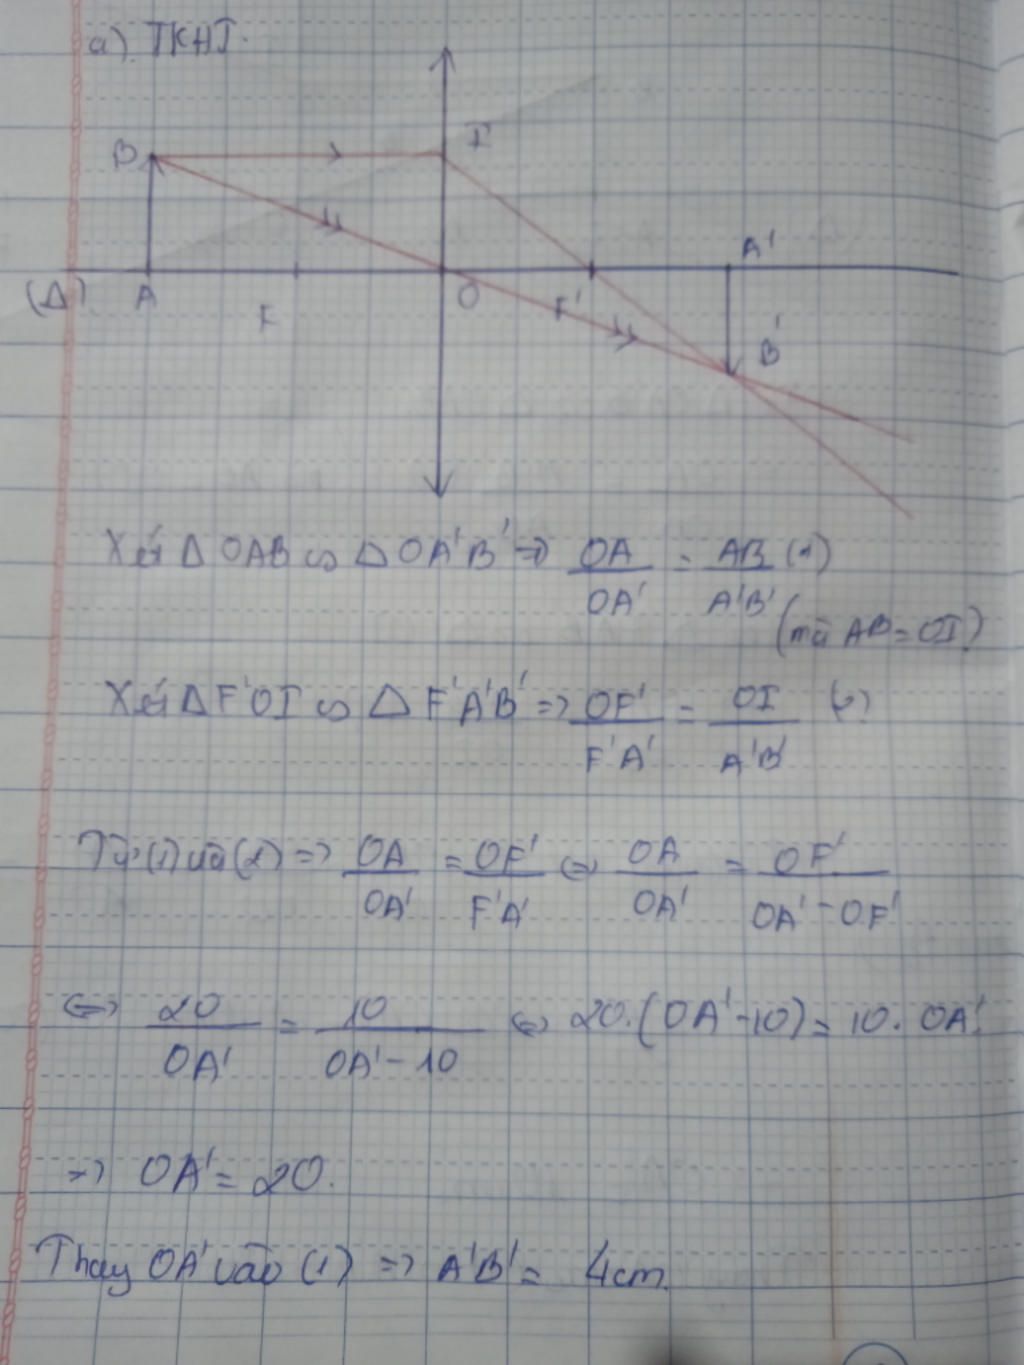 a) TKHT.
I
B
A'
(Δ) A F O F'
B'
Xét Δ OAB ∽ Δ OA'B' => OA/OA' = AB/A'B' (1)
(mà AB = OI)
Xét Δ F'OI ∽ Δ F'A'B' => OF'/F'A' = OI/A'B' (2)
Từ (1) và (2) => OA/OA' = OF'/F'A' <=> OA/OA' = OF'/OA' - OF'
<=> 20/OA' = 10/OA' - 10 <=> 20.(OA' - 10) = 10. OA'
=> OA' = 20.
Thay OA' vào (1) => A'B' = 4cm.